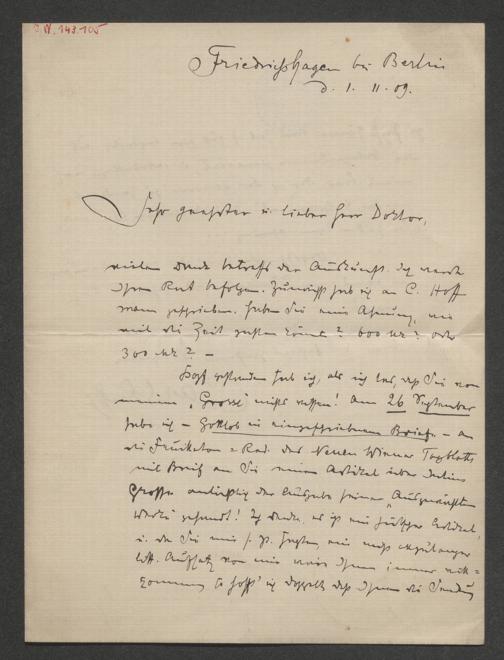 J.N. 143.105
Friedrichshagen bei Berlin
d. 1. 11. 09.
Sehr geehrter u. lieber Herr Doktor,
vielen Dank betreffs der Auskunft. Ich werde
Ihren Rat befolgen. Zunächst hab ich an C. Hoff
mann geschrieben. Haben Sie eine Ahnung, wie
viel die Zeit zahlen könnte? 600 Mk? oder
300 Mk? –
gestanden hab ich, als ich las, daß Sie von
meinem „Grosse" nichts wissen! Am 26 September
habe ich – Gottlob in eingeschriebenem Briefe – an
die Feuilleton-Red. des Neuen Wiener Tagblatts
mit Brief an Sie einen Artikel über Julius
Grosse anläßlich der Ausgabe seiner „Ausgewählten
Werke" gesandt! Ich denke, es ist ein hübscher Artikel,
u. da Sie mir s. Z. sagten, ein nicht
Aufsatz von mir wäre Ihnen immer will-
kommen, so hoff' ich doppelt, daß Ihnen die Sendung